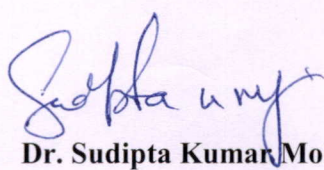 Sudipta
Dr. Sudipta Kumar Mo